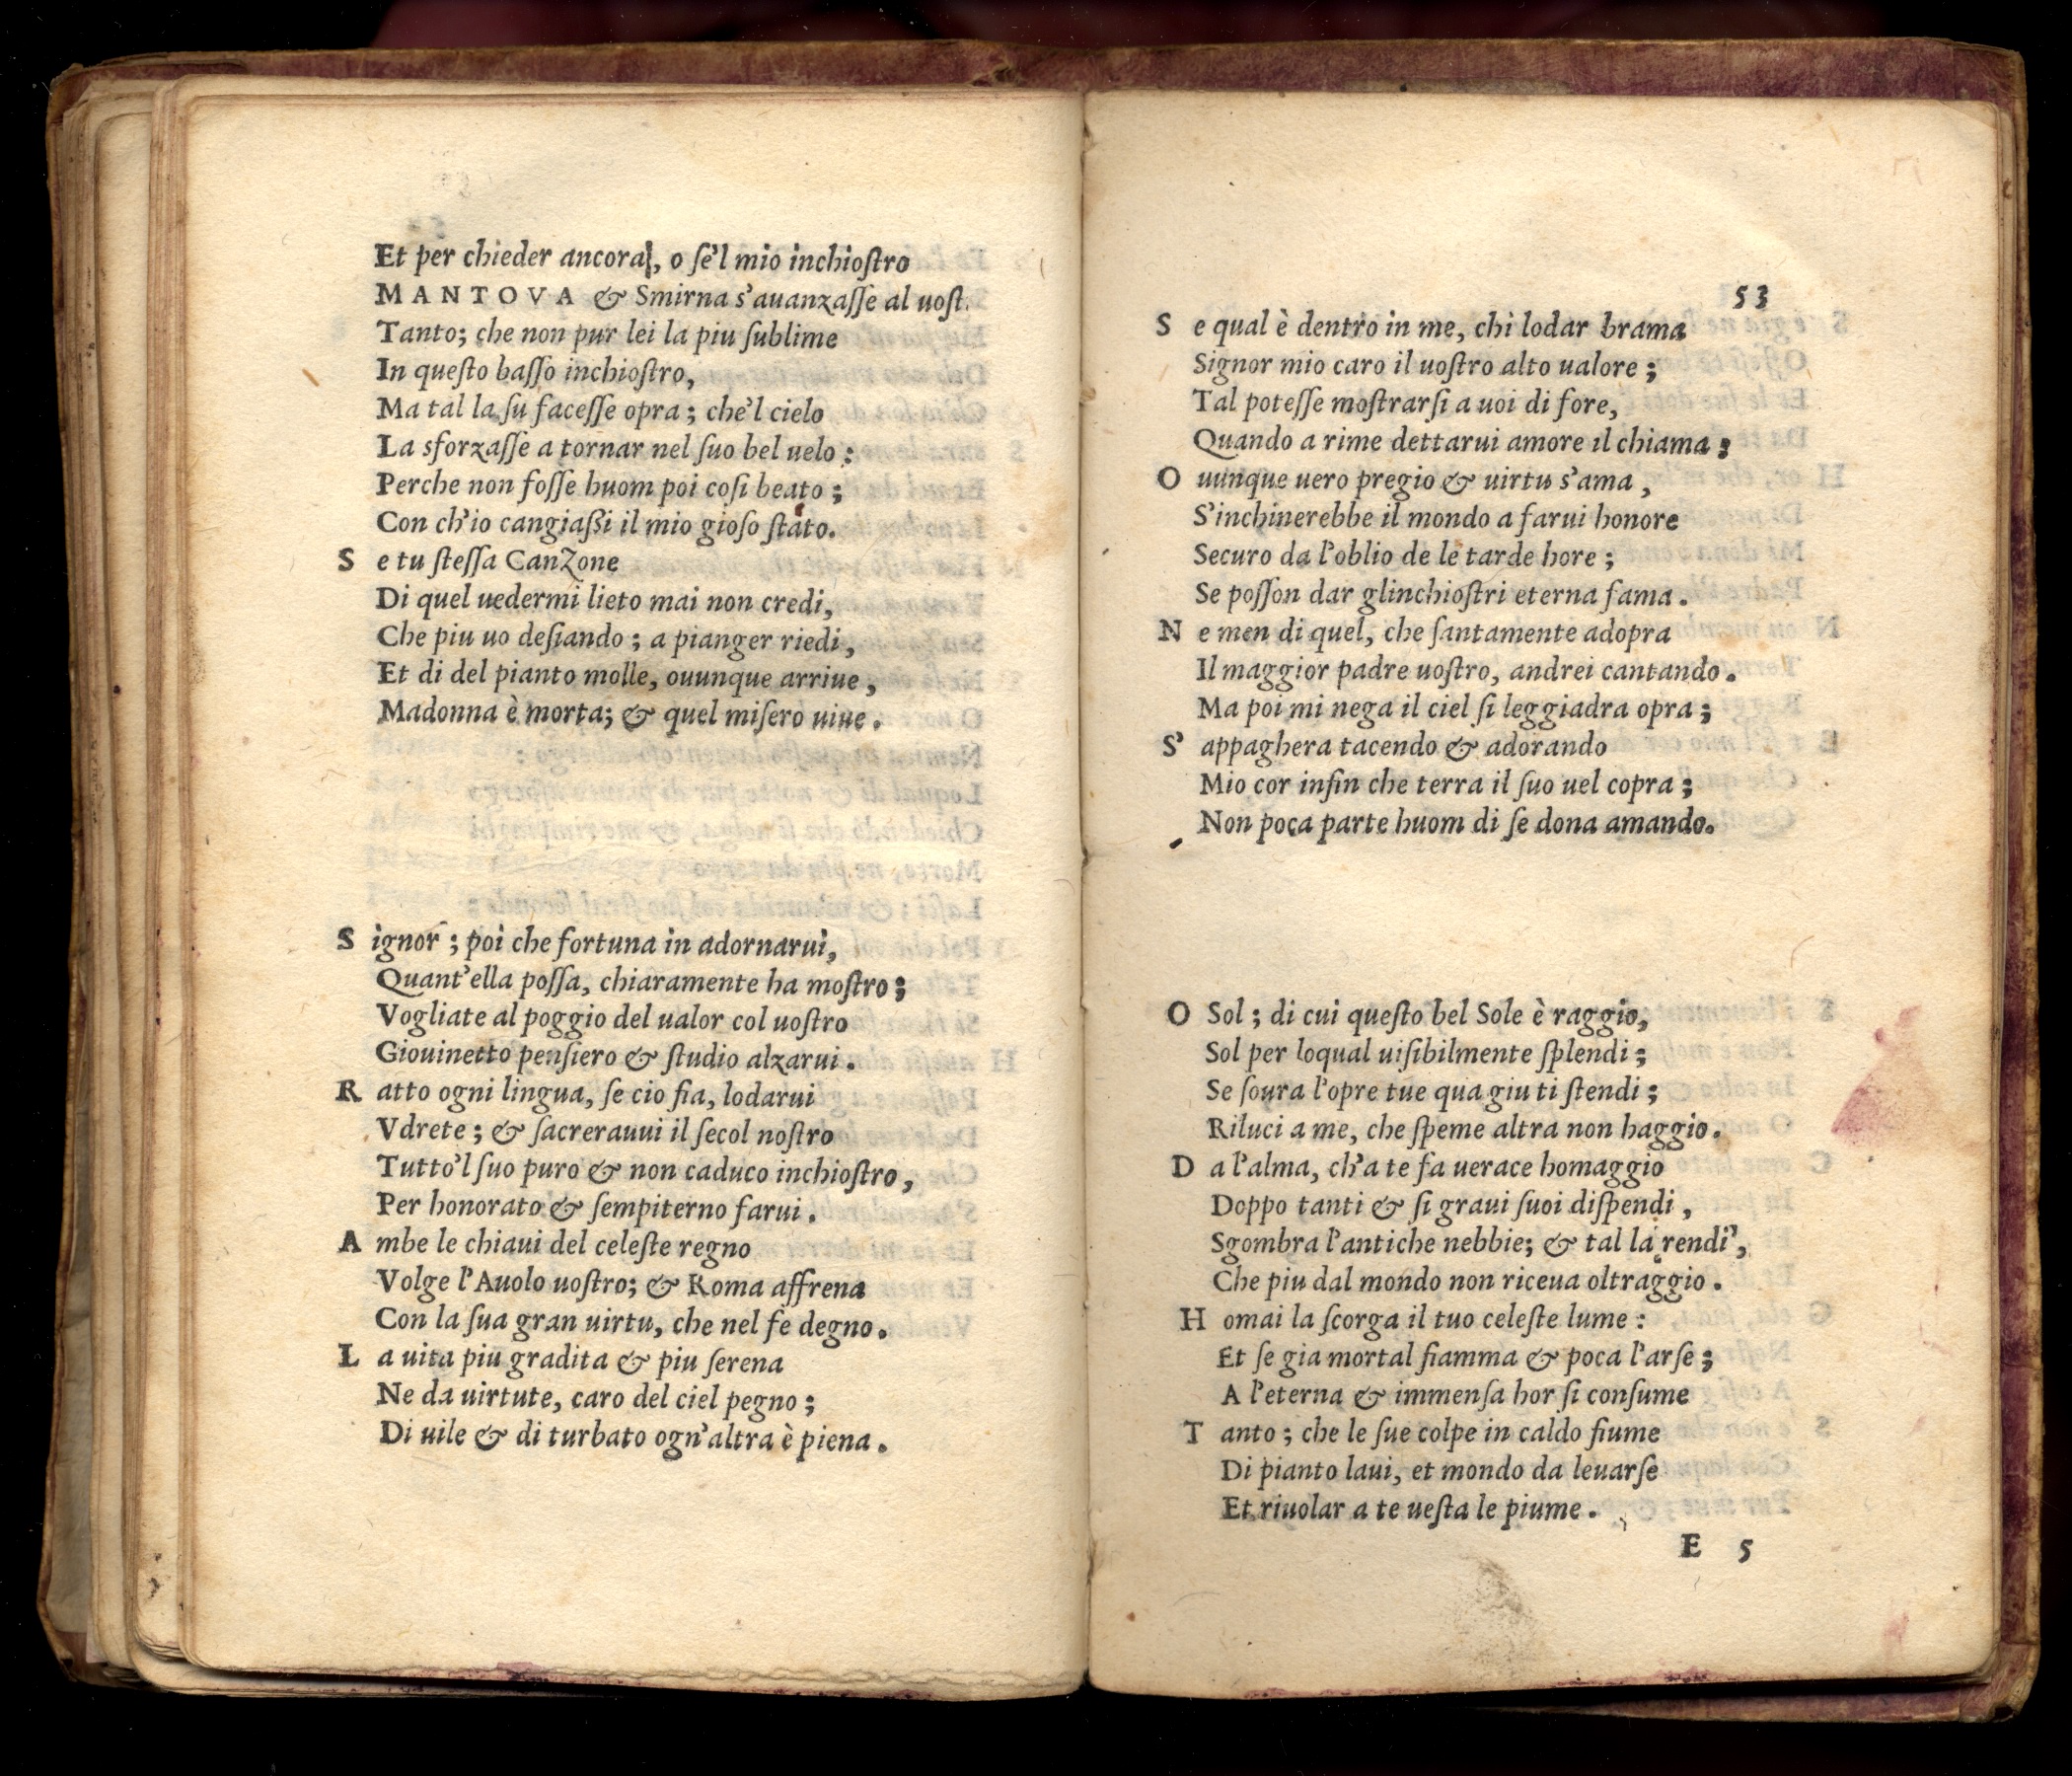 Et per chieder ancora, o ſe'l mio inchioſtro
MANTOVA & Smirna s'auanzaſſe al uoſt.
Tanto; che non pur lei la piu ſublime
In queſto baſſo inchioſtro,
Ma tal la ſu faceſſe opra; che'l cielo
La sforzaſſe a tornar nel ſuo bel uelo;
Perche non foſſe huom poi coſi beato;
Con ch'io cangiaßi il mio gioſo ſtato.
S e tu ſteſſa CanZone
Di quel uedermi lieto mai non credi,
Che piu uo deſiando; a pianger riedi,
Et di del pianto molle, ouunque arriue,
Madonna è morta; & quel miſero uiue.
S ignor; poi che fortuna in adornarui,
Quant'ella poſſa, chiaramente ha moſtro;
Vogliate al poggio del ualor col uoſtro
Giouinetto penſiero & ſtudio alzarui.
R atto ogni lingua, ſe cio fia, lodarui
Vdrete; & ſacrerauui il ſecol noſtro
Tutto'l ſuo puro & non caduco inchioſtro,
Per honorato & ſempiterno farui.
A mbe le chiaui del celeſte regno
Volge l'Auolo uoſtro; & Roma affrena
Con la ſua gran uirtu, che nel fè degno.
L a uita piu gradita & piu ſerena
Ne da uirtute, caro del ciel pegno;
Di uile & di turbato ogn'altra è piena.
53
S e qual è dentro in me, chi lodar brama
Signor mio caro il uoſtro alto ualore;
Tal poteſſe moſtrarſi a uoi di fore,
Quando a rime dettarui amore il chiama;
O uunque uero pregio & uirtu s'ama,
S'inchinerebbe il mondo a farui honore
Securo da l'oblio de le tarde hore;
Se poſſon dar glinchioſtri eterna fama.
N e men di quel, che ſantamente adopra
Il maggior padre uoſtro, andrei cantando.
Ma poi mi nega il ciel ſi leggiadra opra;
S' appaghera tacendo & adorando
Mio cor inſin che terra il ſuo uel copra;
Non poca parte huom di ſe dona amando.
O Sol; di cui queſto bel Sole è raggio,
Sol per loqual uiſibilmente ſplendi;
Se ſoura l'opre tue qua giu ti ſtendi;
Riluci a me, che ſpeme altra non haggio.
D a l'alma, ch'a te fa uerace homaggio
Doppo tanti & ſi graui ſuoi diſpendi,
Sgombra l'antiche nebbie; & tal la rendi,
Che piu dal mondo non riceua oltraggio.
H omai la ſcorga il tuo celeſte lume:
Et ſe gia mortal fiamma & poca l'arſe;
A l'eterna & immenſa hor ſi conſume
T anto; che le ſue colpe in caldo fiume
Di pianto laui, et mondo da leuarſe
Et riuolar a te ueſta le piume.
E 5